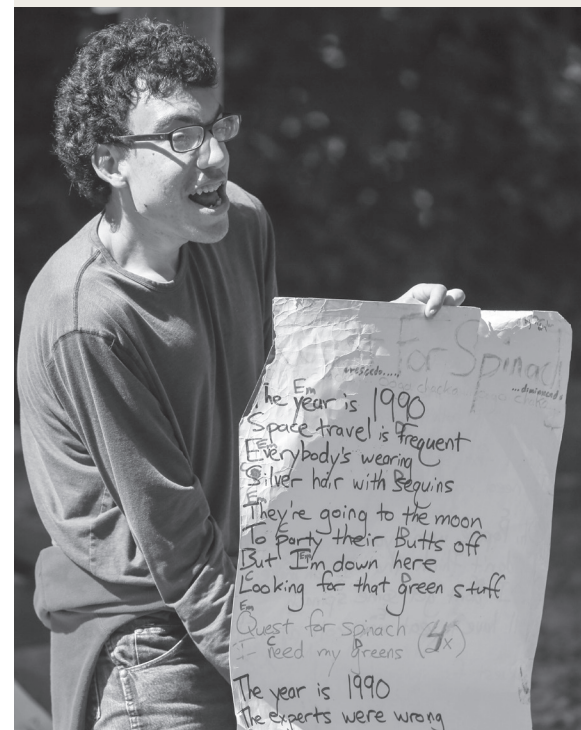 For Spinach
crescendo.....
...diminuendo
Em
The year is 1990
Space travel is frequent
Everybody's wearing
Silver hair with sequins
They're going to the moon
To party their butts off
But I'm down here
Looking for that green stuff
Em
Quest for spinach (4x)
C D
I need my greens
The year is 1990
The experts were wrong